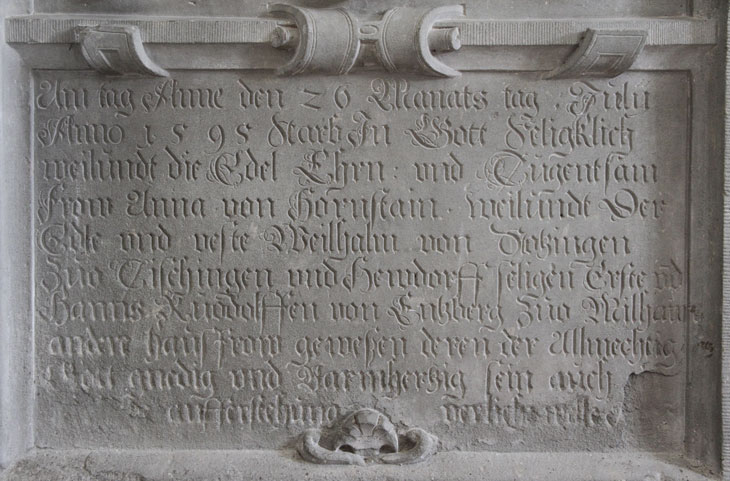 Am tag Anne den 26 Manats tag Julu
Anno 1595 starb In Gott Seligklich
weilundt die Edel Ehrn und Tugentsam
Frow Anna von Hornstain weilundt Der
Edle und veste Weilhalm von
Zuo Tischingen und Hewdorff seligen Erste vnd
Hanns Ruodolffen von Entzberg Zuo Milhaus
andere hausfrow gewesen deren der Allmechtig
Gott gnedig und Barmhertzig sein auch
aufferstehung verliche welle